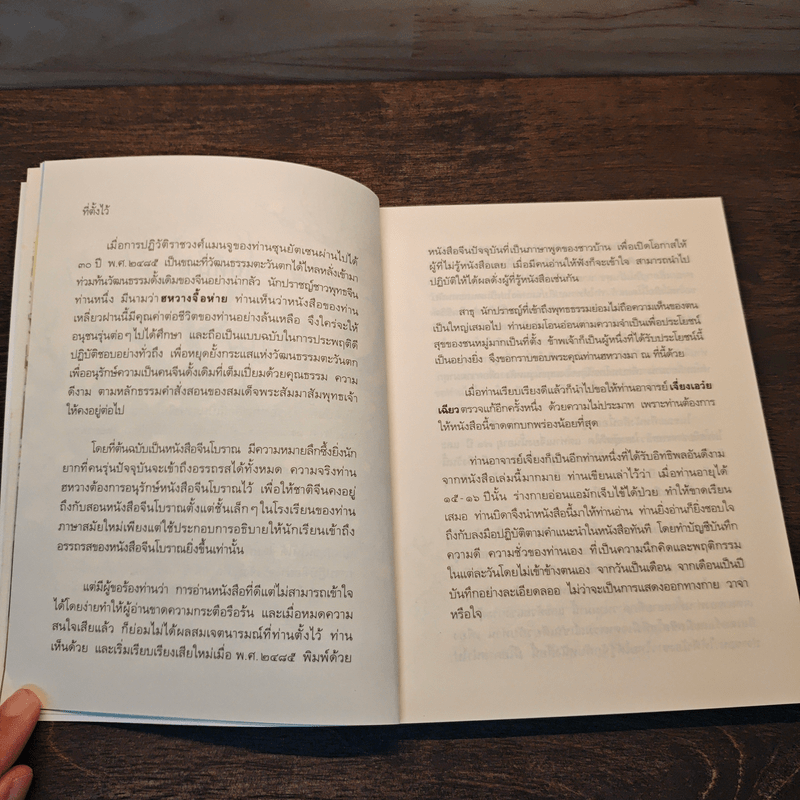 ที่ตั้งไว้
เมื่อการปฏิวัติราชวงศ์แมนจูของท่านซุนยัตเซนผ่านไปได้
๓๐ ปี พ.ศ. ๒๔๘๕ เป็นขณะที่วัฒนธรรมตะวันตกได้ไหลหลั่งเข้ามา
ท่วมทับวัฒนธรรมดั้งเดิมของจีนอย่างน่ากลัว นักปราชญ์ชาวพุทธจีน
ท่านหนึ่ง มีนามว่า ฮหวางจื้อห่าย ท่านเห็นว่าหนังสือของท่าน
เหลี่ยวฝานนี้มีคุณค่าต่อชีวิตของท่านอย่างล้นเหลือ จึงใคร่จะให้
อนุชนรุ่นต่อๆ ไปได้ศึกษา และถือเป็นแบบฉบับในการประพฤติดี
ปฏิบัติชอบอย่างทั่วถึง เพื่อหยุดยั้งกระแสแห่งวัฒนธรรมตะวันตก
เพื่ออนุรักษ์ความเป็นคนจีนดั้งเดิมที่เต็มเปี่ยมด้วยคุณธรรม ความ
ดีงาม ตามหลักธรรมคำสั่งสอนของสมเด็จพระสัมมาสัมพุทธเจ้า
ให้คงอยู่ต่อไป
โดยที่ต้นฉบับเป็นหนังสือจีนโบราณ มีความหมายลึกซึ้งยิ่งนัก
ยากที่คนรุ่นปัจจุบันจะเข้าถึงอรรถรสได้ทั้งหมด ความจริงท่าน
ฮหวางต้องการอนุรักษ์หนังสือจีนโบราณไว้ เพื่อให้ชาติจีนคงอยู่
ถึงกับสอนหนังสือจีนโบราณตั้งแต่ชั้นเล็กๆ ในโรงเรียนของท่าน
ภาษาสมัยใหม่เพียงแต่ใช้ประกอบการอธิบายให้นักเรียนเข้าถึง
อรรถรสของหนังสือจีนโบราณยิ่งขึ้นเท่านั้น
แต่มีผู้ขอร้องท่านว่า การอ่านหนังสือที่ดีแต่ไม่สามารถเข้าใจ
ได้โดยง่ายทำให้ผู้อ่านขาดความกระตือรือร้น และเมื่อหมดความ
สนใจเสียแล้ว ก็ย่อมไม่ได้ผลสมเจตนารมณ์ที่ท่านตั้งไว้ ท่าน
เห็นด้วย และเริ่มเรียบเรียงเสียใหม่เมื่อ พ.ศ. ๒๔๘๕ พิมพ์ด้วย
หนังสือจีนปัจจุบันที่เป็นภาษาพูดของชาวบ้าน เพื่อเปิดโอกาสให้
ผู้ที่ไม่รู้หนังสือเลย เมื่อมีคนอ่านให้ฟังก็จะเข้าใจ สามารถนำไป
ปฏิบัติให้ได้ผลดั่งผู้ที่รู้หนังสือเช่นกัน
สาธุ นักปราชญ์ที่เข้าถึงพุทธธรรมย่อมไม่ถือความเห็นของตน
เป็นใหญ่เสมอไป ท่านยอมโอนอ่อนตามความจำเป็นเพื่อประโยชน์
สุขของชนหมู่มากเป็นที่ตั้ง ข้าพเจ้าก็เป็นผู้หนึ่งที่ได้รับประโยชน์นี้
เป็นอย่างยิ่ง จึงขอกราบขอบพระคุณท่านฮหวางมา ณ ที่นี้ด้วย
เมื่อท่านเรียบเรียงดีแล้วก็นำไปขอให้ท่านอาจารย์ เจี่ยงเอว๋ย
เฉียว ตรวจแก้อีกครั้งหนึ่ง ด้วยความไม่ประมาท เพราะท่านต้องการ
ให้หนังสือนี้ขาดตกบกพร่องน้อยที่สุด
ท่านอาจารย์เจี่ยงก็เป็นอีกท่านหนึ่งที่ได้รับอิทธิพลอันดีงาม
จากหนังสือเล่มนี้มากมาย ท่านเขียนเล่าไว้ว่า เมื่อท่านอายุได้
๑๕-๑๖ ปีนั้น ร่างกายอ่อนแอมักเจ็บไข้ได้ป่วย ทำให้ขาดเรียน
เสมอ ท่านบิดาจึงนำหนังสือนี้มาให้ท่านอ่าน ท่านยิ่งอ่านก็ยิ่งชอบใจ
ถึงกับลงมือปฏิบัติตามคำแนะนำในหนังสือทันที โดยทำบัญชีบันทึก
ความดี ความชั่วของท่านเอง ที่เป็นความนึกคิดและพฤติกรรม
ในแต่ละวันโดยไม่เข้าข้างตนเอง จากวันเป็นเดือน จากเดือนเป็นปี
บันทึกอย่างละเอียดลออ ไม่ว่าจะเป็นการแสดงออกทางกาย วาจา
หรือใจ